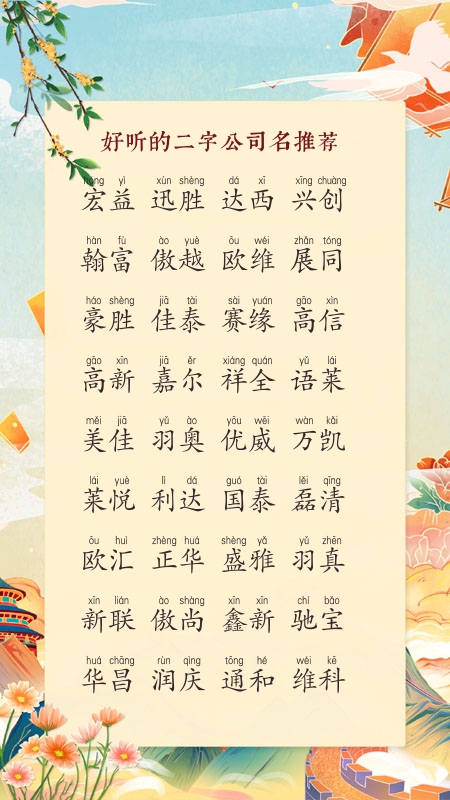 好听的二字公司名推荐
hóng yì xùn shèng dá xī xīng chuàng
宏益 迅胜 达西 兴创
hàn fù ào yuè ōu wéi zhǎn tóng
翰富 傲越 欧维 展同
háo shèng jiā tài sài yuán gāo xìn
豪胜 佳泰 赛缘 高信
gāo xīn jiā ěr xiáng quán yǔ lái
高新 嘉尔 祥全 语莱
měi jiā yǔ ào yōu wēi wàn kǎi
美佳 羽奥 优威 万凯
lái yuè lì dá guó tài lěi qīng
莱悦 利达 国泰 磊清
ōu huì zhèng huá shèng yǎ yǔ zhēn
欧汇 正华 盛雅 羽真
xīn lián ào shàng xīn xīn chí bǎo
新联 傲尚 鑫新 驰宝
huá chāng rùn qìng tōng hé wéi kē
华昌 润庆 通和 维科